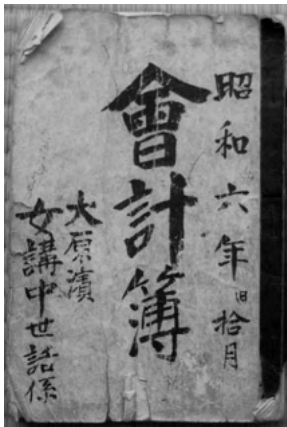 昭和六年旧拾月
會計簿
大原濱
女講中世話係